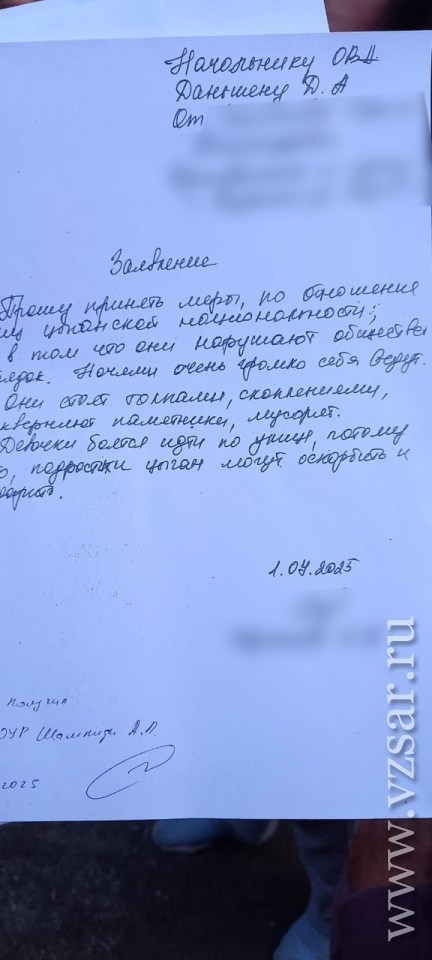 Начальнику ОВД
Даньшену Д. А
От
Заявление
Прошу принять меры, по отношение
лиц цыганской национальности;
в том что они нарушают обществе
рядок. Ночами очень громко себя ведут.
Они стоят толпами, скоплениями,
скверняют паметники, мусорят.
Девочки боятся идти по улици, потому
о, подростки цыган могут оскорбить и
1.07.2025
Получил
ОУР А.П.
2025
www.vzsar.ru